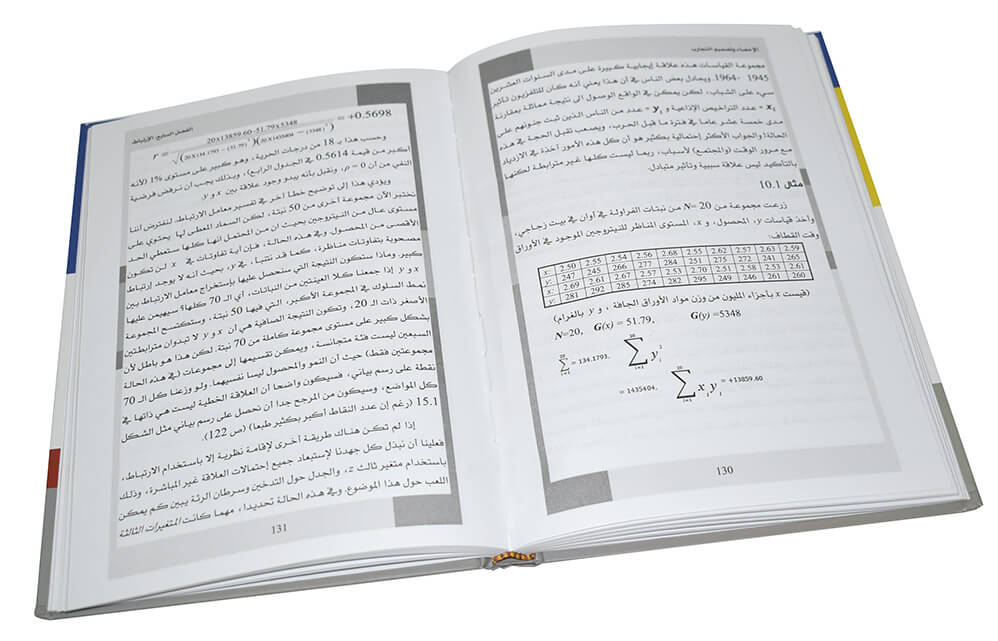 الإحصاء وتصميم التجارب
مجموعة القياسات هذه علاقة إيجابية كبيرة على مدى السنوات العشرين
1945 -1964. ويجادل بعض الناس في أن هذا يعني أنه كان للتلفزيون تأثير
سيء على الشباب، لكن يمكن في الواقع الوصول الى نتيجة مماثلة بمقارنة
x₁ = عدد التراخيص الإذاعية و y₁ = عدد من الناس الذين ثبت جنونهم على
مدى خمسة عشر عاما في فترة ما قبل الحرب، ويصعب تقبل الحجة في هذه
الحالة! والجواب الأكثر إحتمالية بكثير هو ان كل هذه الأمور آخذة في الازدياد
مع مرور الوقت (والمجتمع) لأسباب، ربما ليست كلها غير مترابطة لكنها
بالتأكيد ليس علاقة سببية وتأثير متبادل.
مثال 10.1
زرعت مجموعة من N= 20 من نبتات الفراولة في أوان في بيت زجاجي،
وأخذ قياسات y، المحصول، و x، المستوى المناظر للنيتروجين الموجود في الأوراق
وقت القطاف:
x: 2.50 2.55 2.54 2.56 2.68 2.55 2.62 2.57 2.63 2.59
y: 247 245 266 277 284 251 275 272 241 265
x: 2.69 2.61 2.67 2.57 2.53 2.70 2.51 2.58 2.53 2.61
y: 281 292 285 274 282 295 249 246 261 260
(قيست x بأجزاء المليون من وزن مواد الأوراق الجافة ، و y بالغرام)
N=20, G(x) = 51.79, G(y) =5348
20 ∑ i=1 = 134.1793, 20 ∑ i=1 y i 2
= 1435404, 20 ∑ i=1 x i y i = +13859.60
130
الفصل السابع: الإرتباط
r = 20x13859.60-51.79x5348 / √(20X134.1793 − (51.79)²)(20X1435404 − (5348)²) = +0.5698
وحسب هذا بـ 18 من درجات الحرية، وهو كبير على مستوى 1% (لأنه
أكبر من قيمة 0.5614 في الجدول الرابع)، وبذلك يجب ان نرفض فرضية
النفي من أن ρ = 0، ونقبل بأنه يبدو وجود علاقة بين x و y.
ويؤدي هذا إلى توضيح خطأ آخر في تفسير معامل الارتباط. لنفترض أننا
نختبر الآن مجموعة أخرى من 50 نبتة، لكن السماد المعطى لها يحتوي على
مستوى عال من النيتروجين بحيث ان من المحتمل انها كلها ستعطي الحد
الأقصى من المحصول. وفي هذه الحالة، فإن أية تفاوتات في x لن تكون
مصحوبة بتفاوتات مناظرة، كما قد نتنبأ، في y، بحيث انه لا يوجد إرتباط
كبير. وماذا ستكون النتيجة التي سنحصل عليها بإستخراج معامل الارتباط بين
x و y إذا جمعنا كلا العينتين من النباتات، أي الـ 70 كلها؟ سيهيمن عليها
نمط السلوك في المجموعة الأكبر، التي فيها 50 نبتة، وستكتسح المجموعة
الأصغر ذات الـ 20، وتكون النتيجة الصافية هي أن x و y لا تبدوان مترابطتين
بشكل كبير على مستوى مجموعة كاملة من 70 نبتة. لكن هذا هو باطل لأن
السبعين ليست فئة متجانسة، ويمكن تقسيمها إلى مجموعات (في هذه الحالة
مجموعتين فقط) حيث أن النمو والمحصول ليسا نفسيهما. ولو وزعنا كل الـ 70
نقطة على رسم بياني، فسيكون واضحا أن العلاقة الخطية ليست هي ذاتها في
كل المواضع، وسيكون من المرجح جدا أن نحصل على رسم بياني مثل الشكل
15.1 (رغم إن عدد النقاط أكبر بكثير طبعا) (ص 122).
إذا لم تكن هناك طريقة أخرى لإقامة نظرية إلا باستخدام الارتباط،
فعلينا أن نبذل كل جهدنا لإستبعاد جميع إحتمالات العلاقة غير المباشرة، وذلك
باستخدام متغير ثالث z، والجدل حول التدخين وسرطان الرئة يبين كم يمكن
اللعب حول هذا الموضوع. وفي هذه الحالة تحديدا، مهما كانت المتغيرات الثالثة
131